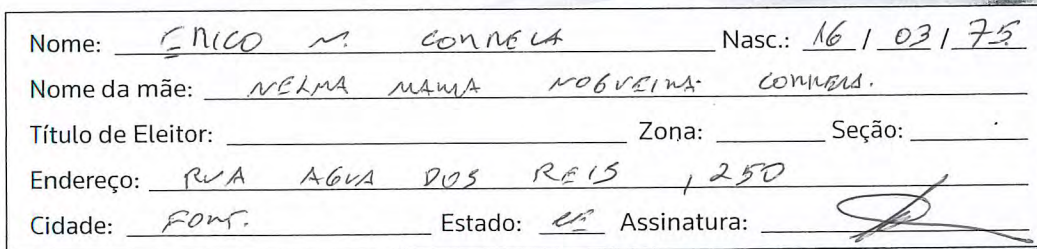 Nome: ERICO N. CORREIA Nasc.: 16 / 03 / 75
Nome da mãe: NELMA MARIA NOGUEIRA CORREIA.
Título de Eleitor: Zona: Seção:
Endereço: RUA AGUA DOS REIS, 250
Cidade: FORT. Estado: CE Assinatura: